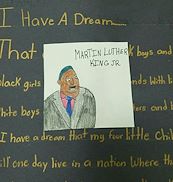 I Have A Dream
That
k boys and
MARTIN LUTHER
KING JR
black girls
nds with li
white boys
ters and b
I have a dream that my four little Child
ill one day live in a nation Where th